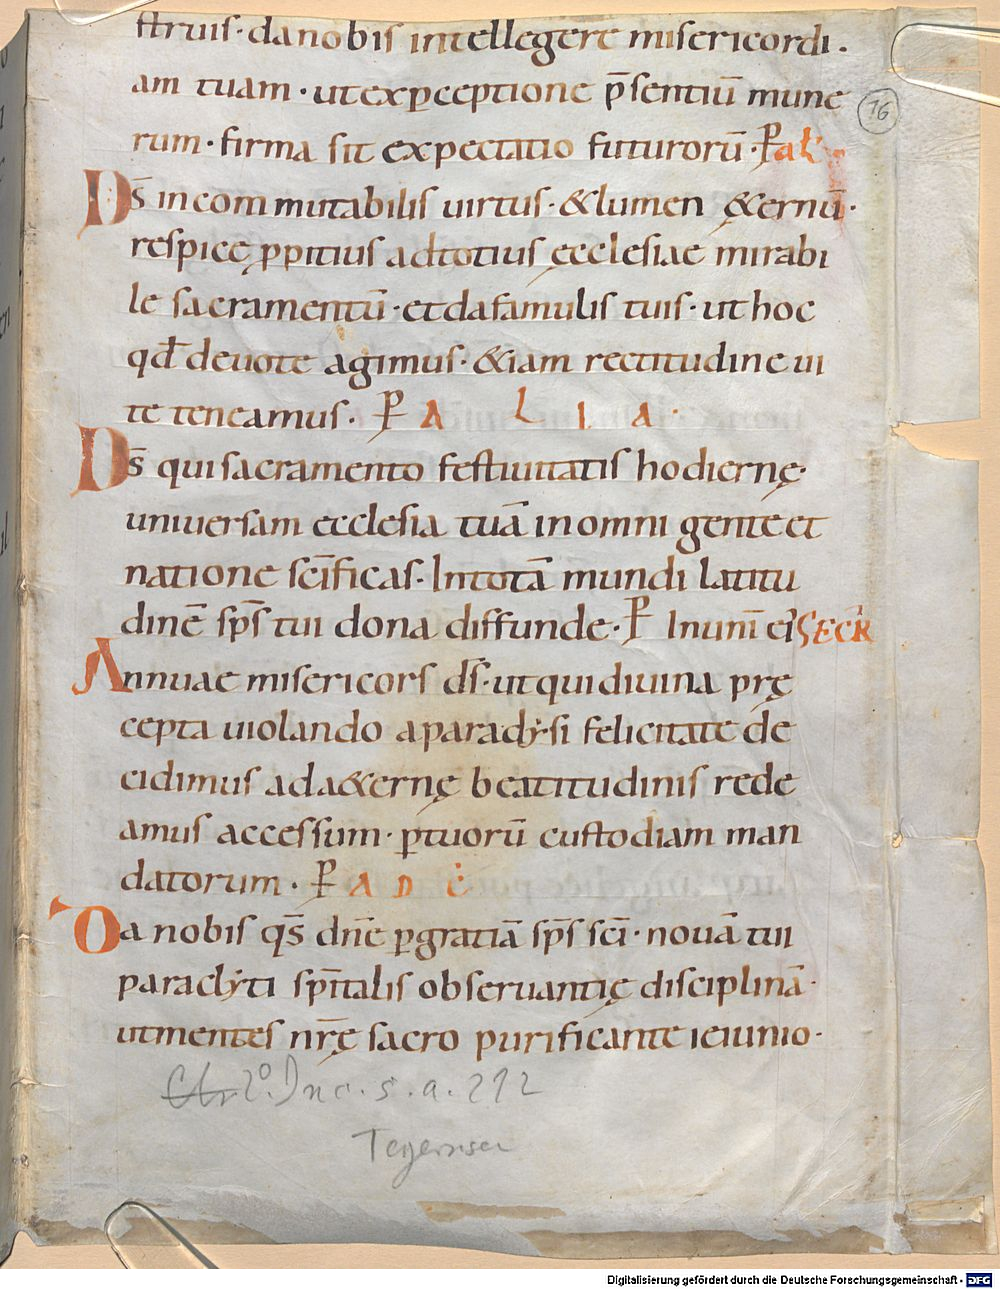 struis · da nobis intellegere misericordi ·
am tuam · ut exꝑceptione p̄sentiū mune
rum · firma sit expectatio futurorū · P̄ al̄
16
Ds̄ incommutabilis uirtus · & lumen &ernū ·
respicę ꝓpitius ad totius ęcclesiae mirabi
le sacramentū · et da famulis tuis · ut hoc
qd̄ deuote agimus · &iam rectitudine ui
te teneamus · P̄ A L I A ·
Ds̄ qui sacramento festiuitatis hodiernę ·
uniuersam ecclesia tuā in omni gente et
natione sc̄ificas · In totā mundi latitu
dinē sp̄s tui dona diffunde · P̄ In unim̄ ei SECR̄
Annuae misericors ds̄ · ut qui diuina prę
cepta uiolando a paradẏsi felicitate de
cidimus ad a&ernę beatitudinis rede
amus accessum · ꝑ tuorū custodiam man
datorum · P̄ A D C̄
Da nobis qs̄ dn̄e ꝑ gratiā sp̄s sc̄i · nouā tui
paraclẏti sp̄italis obseruantię disciplinā ·
ut mentes nr̄ę sacro purificante ieiunio ·
2º Inc. s. a. 212
Tegernsee
Digitalisierung gefördert durch die Deutsche Forschungsgemeinschaft - DFG